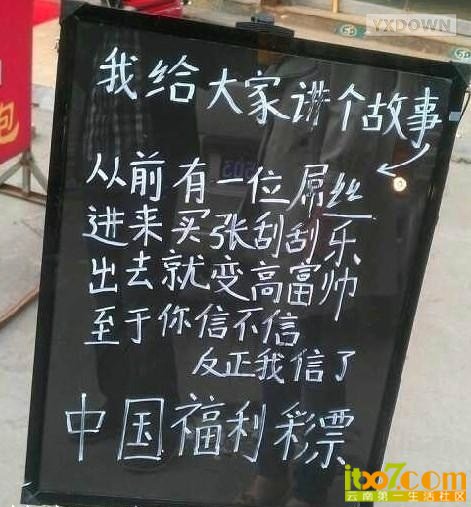 YXDOWN
我给大家讲个故事
从前有一位屌丝
进来买张刮刮乐
出去就变高富帅
至于你信不信
反正我信了
中国福利彩票
itbo7com
云南第一生活社区